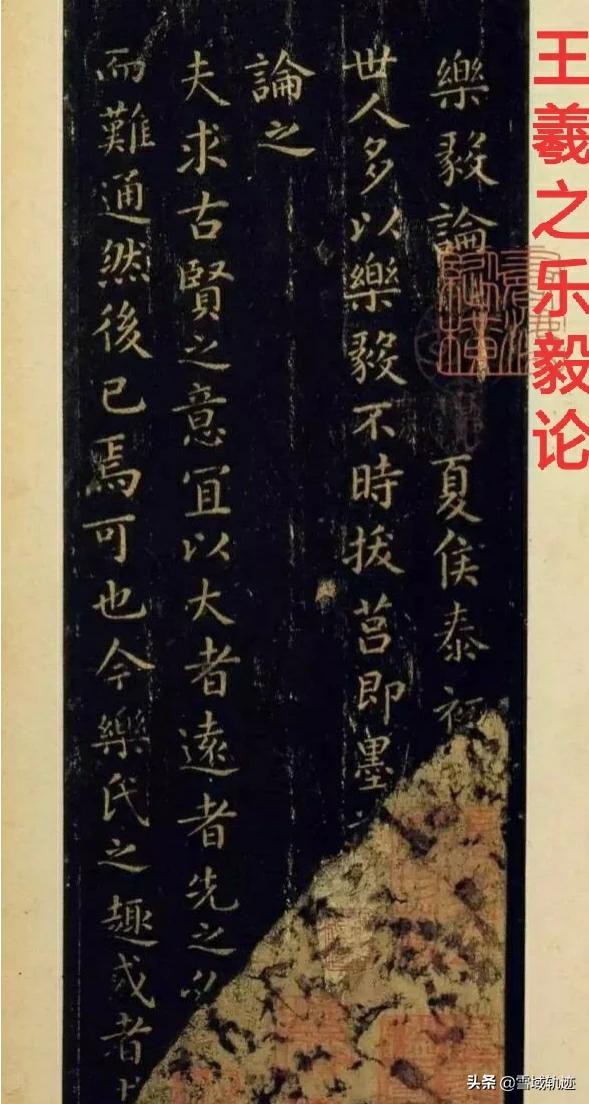 王羲之乐毅论
樂毅論 夏侯泰
世人多以樂毅不時拔莒即墨
論之
夫求古賢之意宜以大者遠者先之
而難通然後已焉可也今樂氏之趣或者
头条 @雪域轨迹